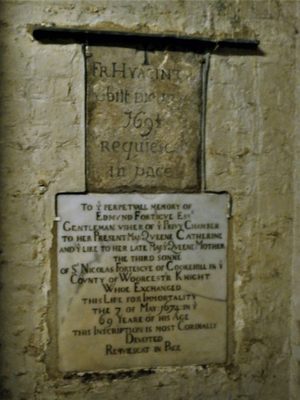 FR. HYACINT
obiit Die
169
requiesca
in pace
TO Yᵉ PERPETVALL MEMORY OF
EDMVND FORTIGVE ESQʳ
GENTLEMAN VSHER OF Yᵉ PRIVY CHAMBER
TO HER PRESENT MAJ: QVEENE CATHERINE
AND Yᵉ LIKE TO HER LATE MAJ: QVEENE MOTHER
THE THIRD SONNE
OF Sʳ NICOLAS FORTEICVE OF COOKEHILL IN Yᵉ
COVNTY OF WOORCESTR KNIGHT
WHOE EXCHANGED
THIS LIFE FOR IMMORTALITY
THE 7 OF MAY 1674 IN Yᵉ
69 YEARE OF HIS AGE
THIS INSCRIPTION IS MOST CORDIALLY
DEVOTED
REQVIESCAT IN PACE